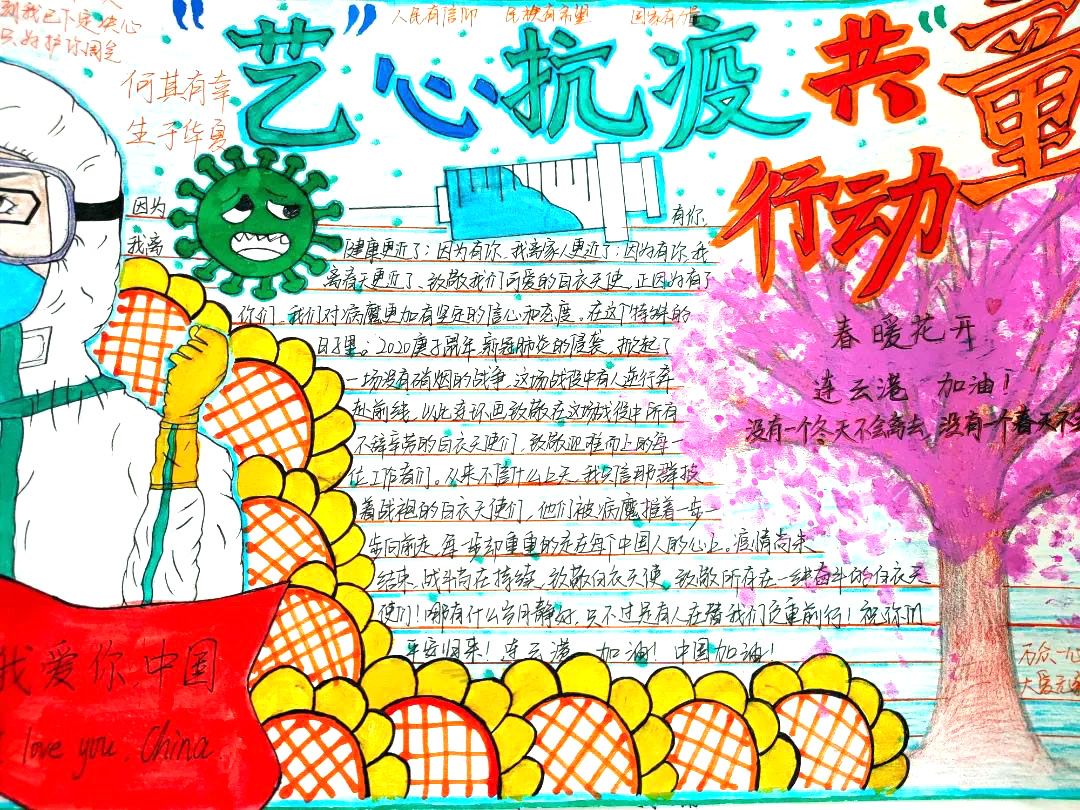 到我已下定决心
只为护你周全
人民有信仰 民族有希望 国家有力量
何其有幸
生于华夏
“艺”心抗疫共“童”
行动
因为 有你,
我离 健康更近了;因为有你,我离家人更近了;因为有你,我
离春天更近了,致敬我们可爱的白衣天使,正因为有了
你们,我们对病魔更加有坚定的信心和态度。在这个特殊的
日子里。2020庚子鼠年,新冠肺炎的侵袭,掀起了
一场没有硝烟的战争,这场战役中有人逆行奔
赴前线,以此表环画致敬在这场战役中所有
不辞辛劳的白衣天使们,致敬迎难而上的每一
位工作者们。从来不信什么上天,我只信那群披
着战袍的白衣天使们,他们被病魔推着一步一
步向前走,每一步却重重的走在每个中国人的心上。疫情尚未
结束,战斗尚在持续,致敬白衣天使,致敬所有在一线奋斗的白衣天
使们!哪有什么岁月静好,只不过是有人在替我们负重前行!祝你们
平安归来!连云港 加油!中国加油!
春暖花开
连云港 加油!
没有一个冬天不会离去,没有一个春天不会
万众一心
我爱你,中国
I love you, China